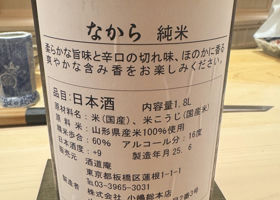 なから 純米
柔らかな旨味と辛口の切れ味、ほのかに香る
爽やかな含み香をお楽しみください。
品目:日本酒 内容量1.8L
原材料 米(国産)、米こうじ(国産米)
原料米:山形県産米100%使用
精米歩合:60% アルコール分:16度
日本酒度:+9 製造年月25. 6
販売元 酒道庵
東京都板橋区蓮根1-1-1
03-3965-3031
製造者 株式会社 小嶋総本店
2番3号